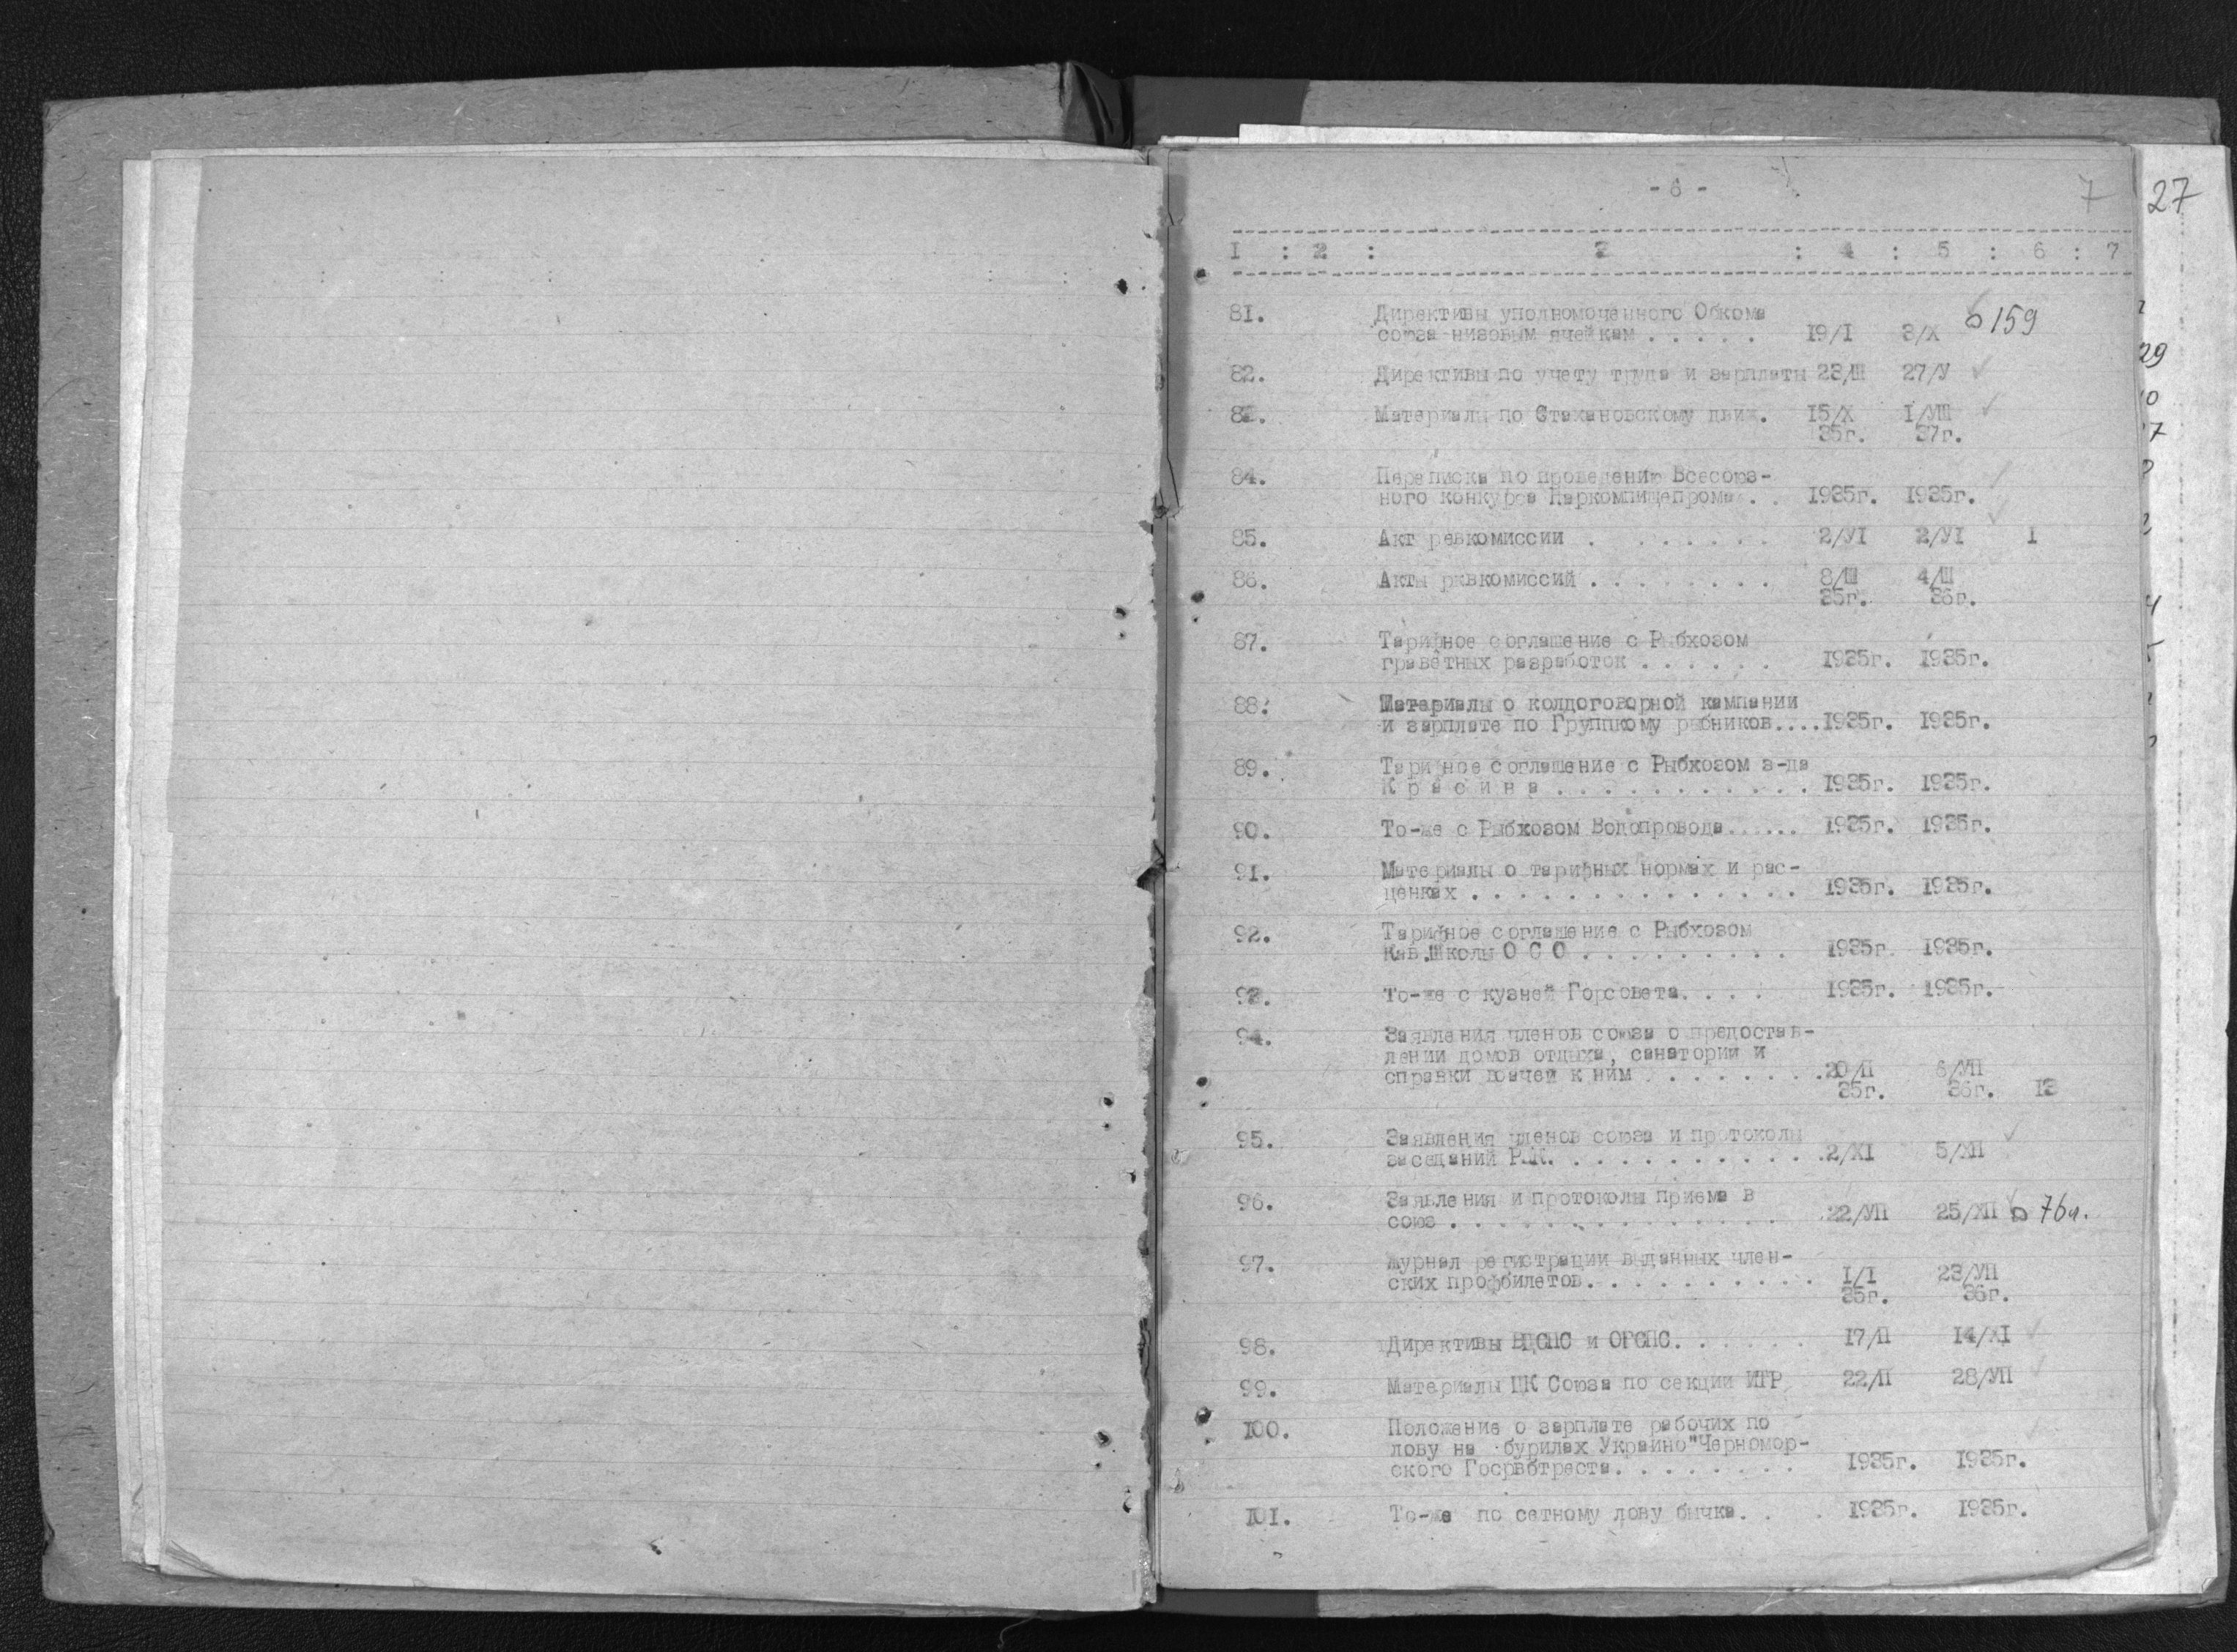 - 6 -
7
27
I : 2 : 3 : 4 : 5 : 6 : 7
81. Директивы уполномоченного Обкома
союза низовым ячейкам . . . . . 19/I 3/X 159
82. Директивы по учету труда и зарплаты 23/Ш 27/У
83. Материалы по Стахановскому движ. 15/X I/УШ
35г. 37г.
84. Переписка по проведению Всесоюз-
ного конкурса Наркомпищепрома . . 1935г. 1935г.
85. Акт ревкомиссии . . . . . . . 2/УI 2/УI I
86. Акты рквкомиссий . . . . . . . . 8/Ш 4/Ш
35г. 36г.
87. Тарифное соглашение с Рыбхозом
граветных разработок . . . . . . 1935г. 1935г.
88. Материалы о колдоговорной кампании
и зарплате по Группкому рыбников....1935г. 1935г.
89. Тарифное соглашение с Рыбхозом з-да
К р а с и н а . . . . . . . . . . . 1935г. 1935г.
90. То-же с Рыбхозом Водопровода...... 1935г. 1935г.
91. Материалы о тарифных нормах и рас-
ценках . . . . . . . . . . . . . . 1935г. 1935г.
92. Тарифное соглашение с Рыбхозом
Кав.Школы О С О . . . . . . . . . 1935г. 1935г.
93. То-же с кузней Горсовета. . . . 1935г. 1935г.
94. Заявления членов союза о предостав-
лении домов отдыха, санатории и
справки врачей к ним . . . . . . . .20/П 6/УП
35г. 36г. 13
95. Заявления членов союза и протоколы
заседаний РКК. . . . . . . . . . . .2/XI 5/ХП
96. Заявления и протоколы приема в
союз . . . . . . . . . . . . . . 22/УП 25/ХП 76а.
97. Журнал регистрации выданных член-
ских профбилетов. . . . . . . . . . I/I 23/УП
35г. 36г.
98. Директивы ВЦСПС и ОРСПС. . . . . . 17/П 14/XI
99. Материалы ЦК Союза по секции ИТР 22/П 28/УП
100. Положение о зарплате рабочих по
лову на бурилах Украйно"Черномор-
ского Госрвбтреста. . . . . . . . 1935г. 1935г.
101. То-же по сетному лову бычка. . . 1935г. 1935г.